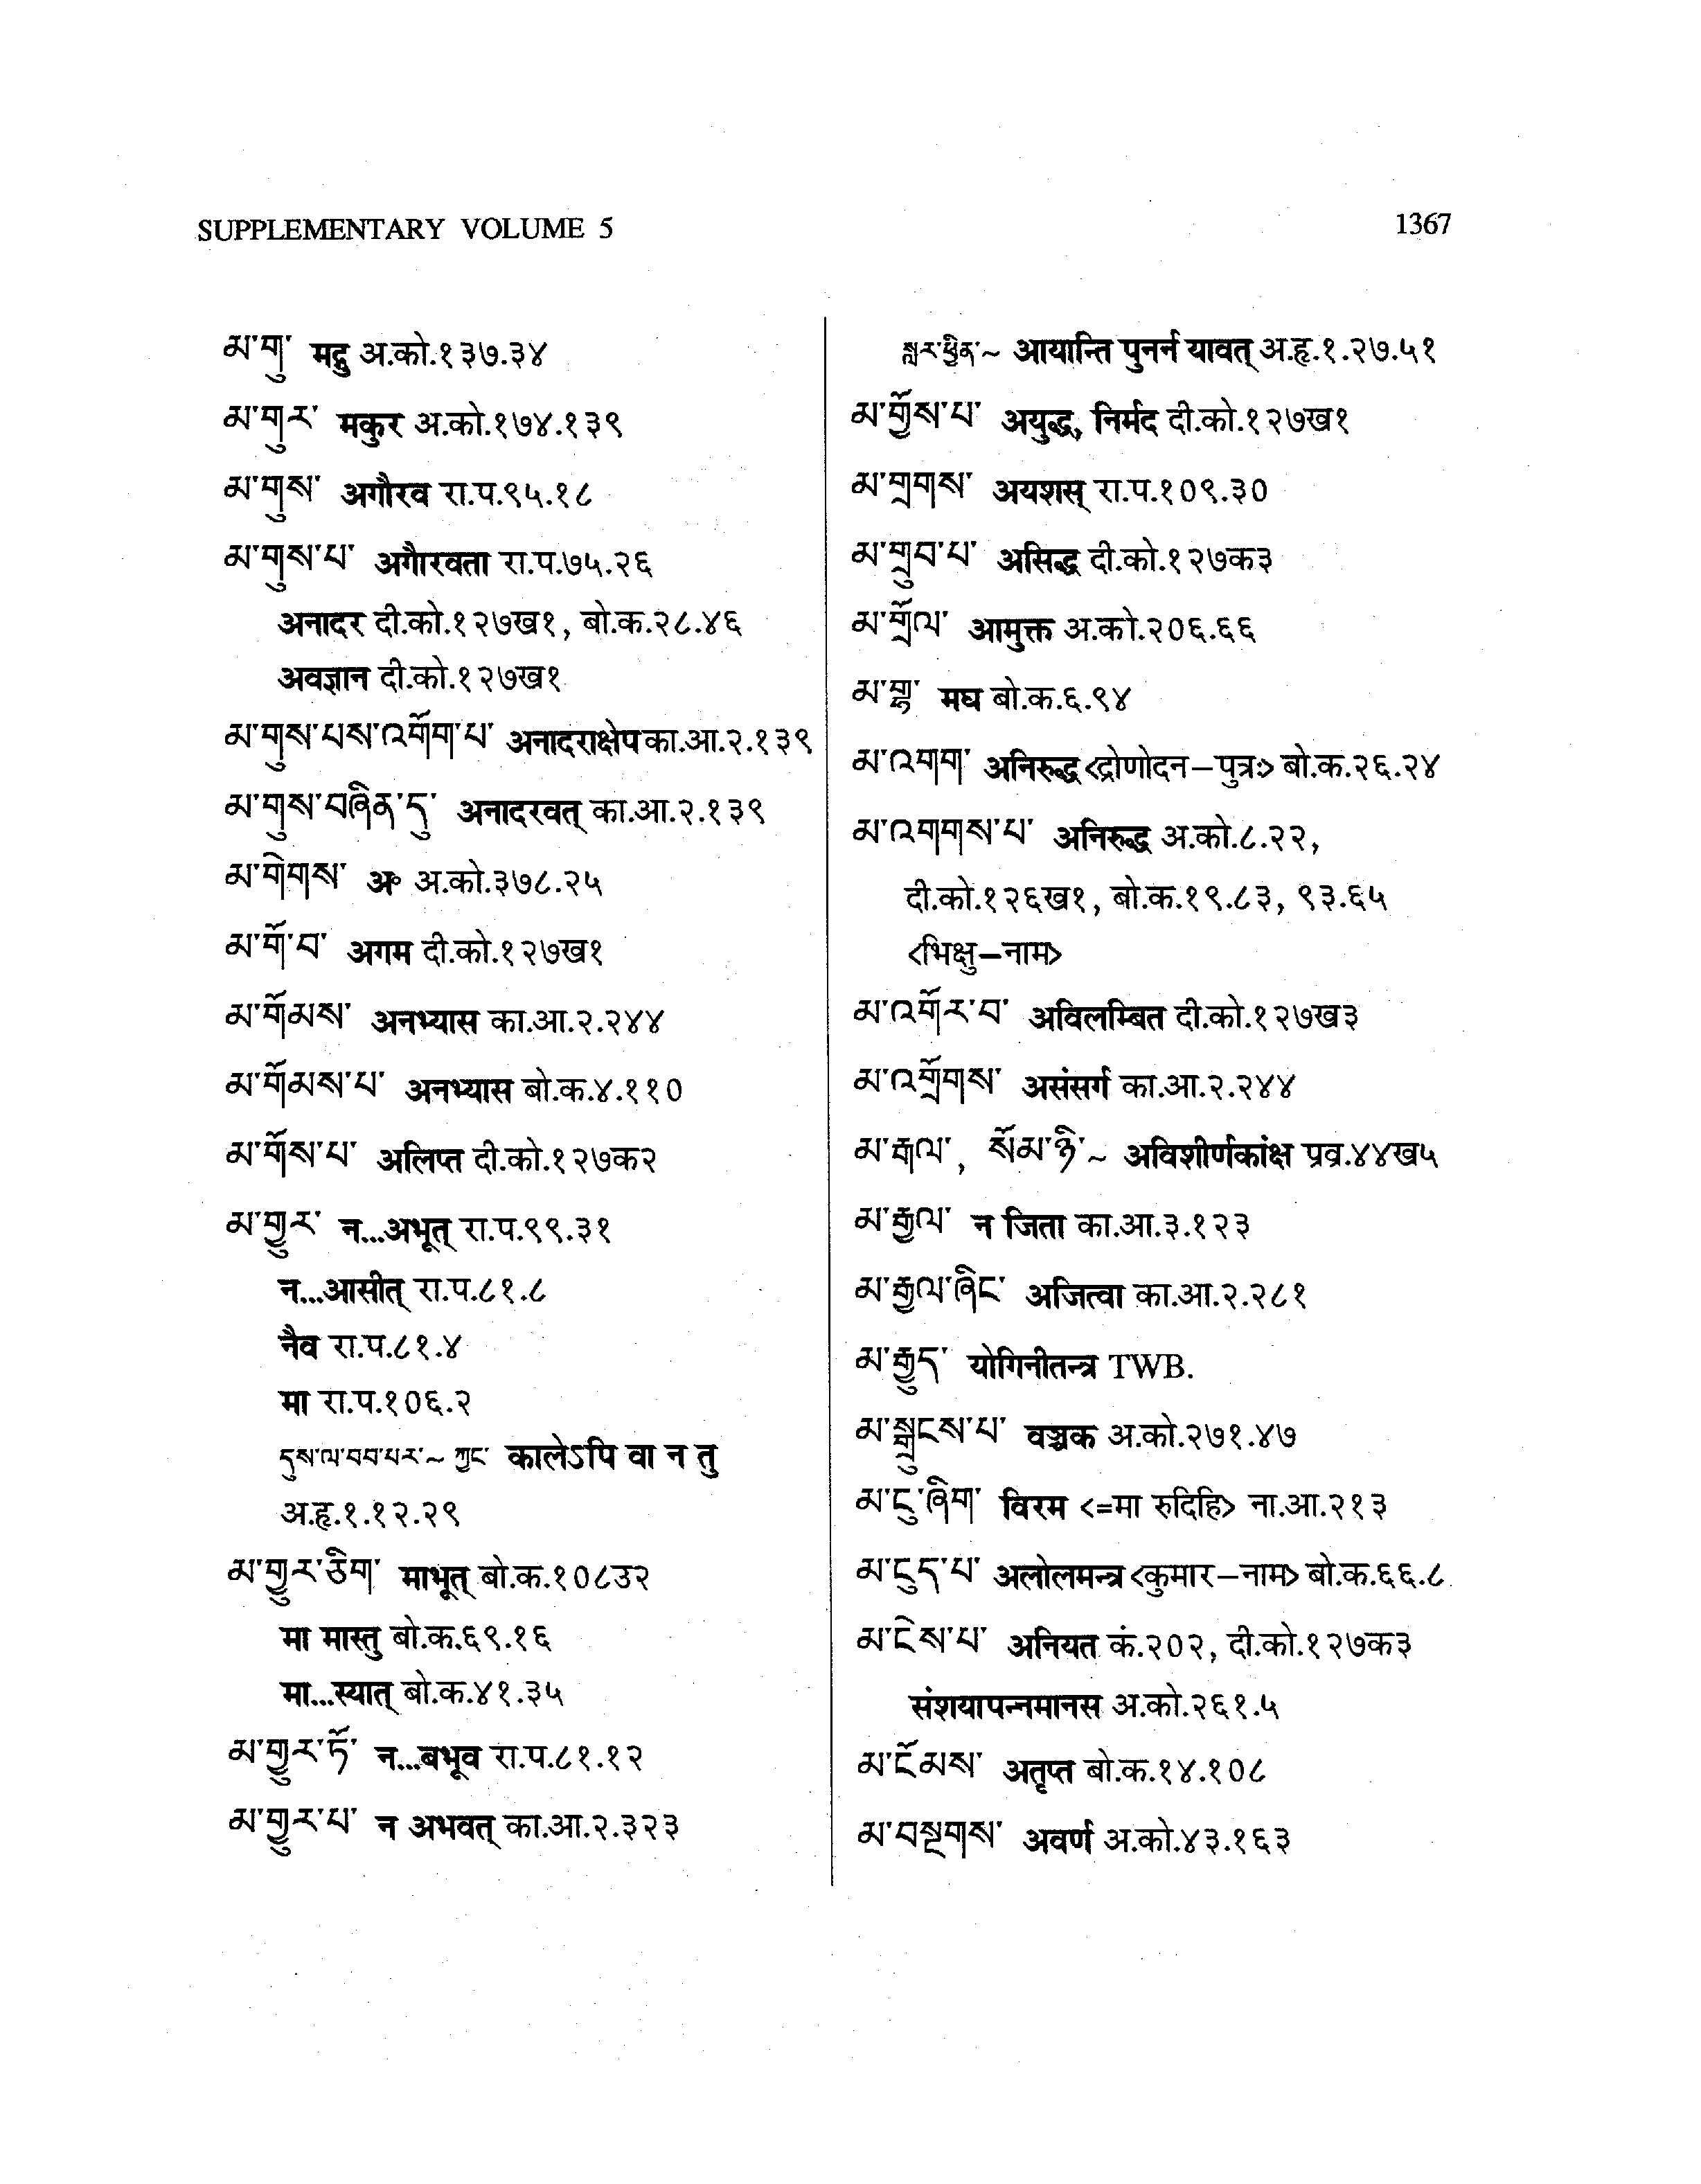 SUPPLEMENTARY VOLUME 5
1367
མ་གུ་ मद्गु अ.को.१३७.३४
མ་གུར་ मकुर अ.को.१७४.१३९
མ་གུས་ अगौरव रा.प.९५.१८
མ་གུས་པ་ अगौरवता रा.प.७५.२६
अनादर दी.को.१२७ख१, बो.क.२८.४६
अवज्ञान दी.को.१२७ख१
མ་གུས་པས་འགོག་པ་ अनादराक्षेप का.आ.२.१३९
མ་གུས་བཞིན་དུ་ अनादरवत् का.आ.२.१३९
མ་གེགས་ अ॰ अ.को.३७८.२५
མ་གོ་བ་ अगम दी.को.१२७ख१
མ་གོམས་ अनभ्यास का.आ.२.२४४
མ་གོམས་པ་ अनभ्यास बो.क.४.११०
མ་གོས་པ་ अलिप्त दी.को.१२७क२
མ་གྱུར་ न...अभूत् रा.प.९९.३१
न...आसीत् रा.प.८१.८
नैव रा.प.८१.४
मा रा.प.१०६.२
དུས་ལ་བབ་པར་~ ཀྱང་ कालेऽपि वा न तु
अ.हृ.१.१२.२९
མ་གྱུར་ཅིག་ माभूत् बो.क.१०८उ२
मा मास्तु बो.क.६९.१६
मा...स्यात् बो.क.४१.३५
མ་གྱུར་ཏོ་ न...बभूव रा.प.८१.१२
མ་གྱུར་པ་ न अभवत् का.आ.२.३२३
སླར་ཕྱིན་~ आयान्ति पुनर्न यावत् अ.हृ.१.२७.५१
མ་གྱོས་པ་ अयुद्ध, निर्मद दी.को.१२७ख१
མ་གྲགས་ अयशस् रा.प.१०९.३०
མ་གྲུབ་པ་ असिद्ध दी.को.१२७क३
མ་གྲོལ་ आमुक्त अ.को.२०६.६६
མ་གྷ་ मघ बो.क.६.९४
མ་འགག་ अनिरुद्ध <द्रोणोदन–पुत्रः> बो.क.२६.२४
མ་འགགས་པ་ अनिरुद्ध अ.को.८.२२,
दी.को.१२६ख१, बो.क.१९.८३, ९३.६५
<भिक्षु–नाम>
མ་འགོར་བ་ अविलम्बित दी.को.१२७ख३
མ་འགྲོགས་ असंसर्ग का.आ.२.२४४
མ་རྒལ་, སོམ་ཉི་~ अविशीर्णकांक्ष प्रव्र.४४ख५
མ་རྒྱལ་ न जिता का.आ.३.१२३
མ་རྒྱལ་ཞིང་ अजित्वा का.आ.२.२८१
མ་རྒྱུད་ योगिनीतन्त्र TWB.
མ་སྒྲུངས་པ་ वञ्चक अ.को.२७१.४७
མ་ངུ་ཞིག་ विरम <=मा रुदिहि> ना.आ.२१३
མ་ངུད་པ་ अलोलमन्त्र <कुमार–नाम> बो.क.६६.८
མ་ངེས་པ་ अनियत कं.२०२, दी.को.१२७क३
संशयापन्नमानस अ.को.२६१.५
མ་ངོམས་ अतृप्त बो.क.१४.१०८
མ་བསྔགས་ अवर्ण अ.को.४३.१६३